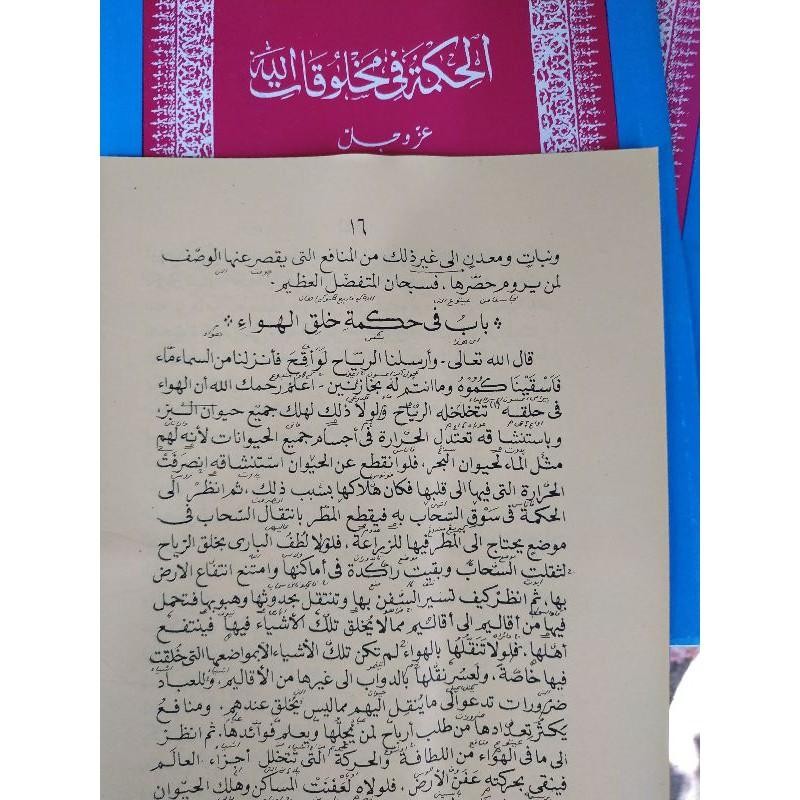 الحكمة في مخلوقات الله
عز وجل
١٦
ونبات ومعدن الى غير ذلك من المنافع التى يقصر عنها الوصف
لمن يروم حصرها، فسبحان المتفضل العظيم.
* باب فى حكمة خلق الهواء *
قال الله تعالى - وأرسلنا الرياح لواقح فأنزلنا من السماء ماء
فأسقيناكموه وما انتم له بخازنين - اعلم رحمك الله أن الهواء
فى خلقه (١) تتخلخله الرياح ولولا ذلك لهلك جميع حيوان البر،
وباستنشاقه تعتدل الحرارة فى اجسام جميع الحيوانات لأنه لهم
مثل الماء لحيوان البحر، فلو انقطع عن الحيوان استنشاقه انصرفت
الحرارة التى فيها الى قلبها فكان هلاكها بسبب ذلك، ثم انظر الى
الحكمة فى سوق السحاب به فيقطع المطر بانتقال السحاب فى
موضع يحتاج الى المطر فيها للزراعة، فلولا لطف البارى بخلق الرياح
لثقلت السحاب وبقيت راكدة فى أماكنها وامتنع انتفاع الارض
بها، ثم انظر كيف تسير السفن بها وتنتقل بحدوثها وهبوبها فتحمل
فيها من أقاليم الى أقاليم مما لا يخلق تلك الأشياء فيها فينتفع
أهلها. فلولا تنقلها بالهواء لم تكن تلك الأشياء الا بمواضعها التى خلقت
فيها خاصة، ولعسر نقلها بالدواب الى غيرها من الأقاليم، وللعباد
ضرورات تدعو الى ما ينقل اليهم مما ليس يخلق عندهم. ومنافع
يكثر تعدادها من طلب أرباح لمن يجلبها ويعلم فوائدها. ثم انظر
الى ما فى الهواء من اللطافة والحركة التى تتخلل أجزاء العالم
فينقى بحركته عفن الأرض. فلولاه لعفنت المساكن وهلك الحيوان